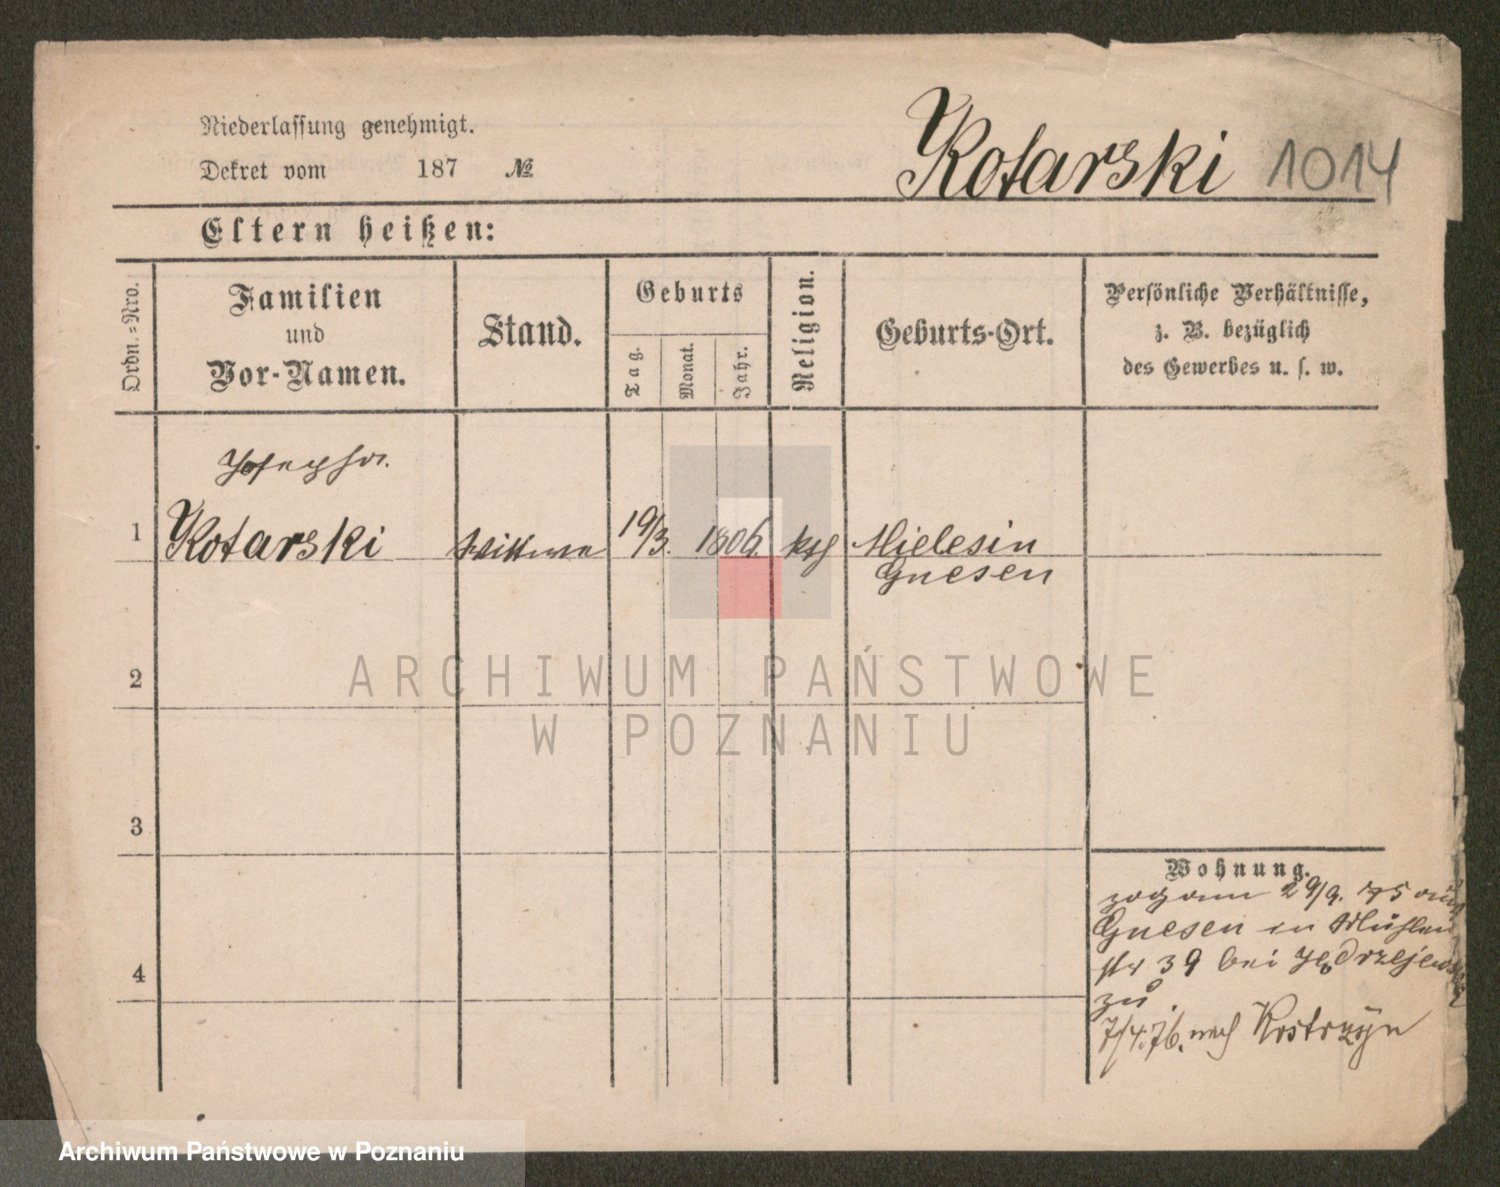 Niederlassung genehmigt.
Dekret vom 187 №
Kotarski 1014
Eltern heißen:
Ordn.-Nro.
Familien
und
Vor-Namen.
Stand.
Geburts
Tag.
Monat.
Jahr.
Religion.
Geburts-Ort.
Persönliche Verhältnisse,
z. B. bezüglich
des Gewerbes u. s. w.
Josepha
1 Kotarski Wittwe 19/3. 1806. kth Mielesin
Gnesen
2
3
4
Wohnung.
zog am 29/9. 75 aus
Gnesen in Mühlen
str 39 bei Jędrzejewski
zu.
7/4.76. nach Kostrzyn
ARCHIWUM PAŃSTWOWE
W POZNANIU
Archiwum Państwowe w Poznaniu